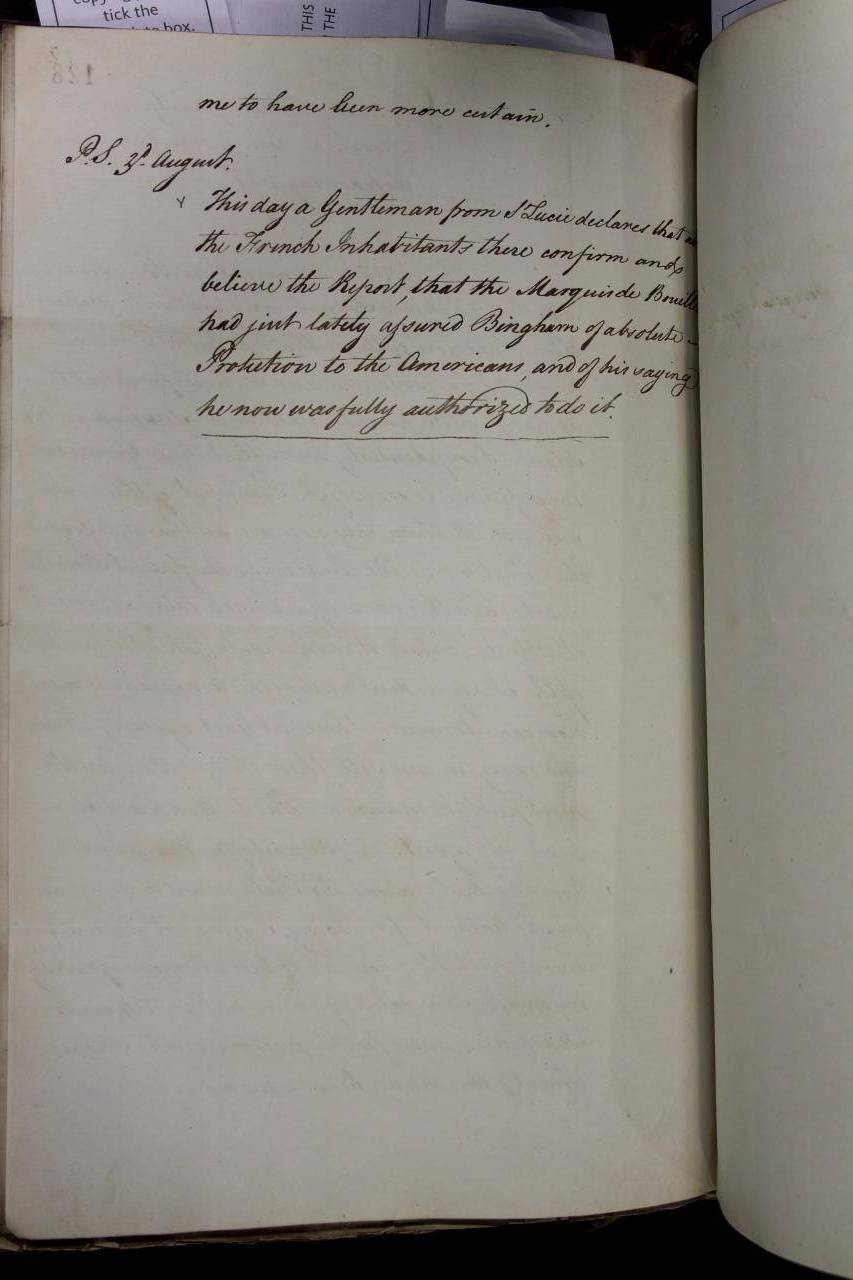 tick the
box.
THIS
THE
me to have been more certain.
P.S. 3d. August.
This day a Gentleman from St Lucie declares that
the French Inhabitants there confirm and
believe the Report, that the Marquis de Bouille
had just lately assured Bingham of absolute
Protection to the Americans, and of his saying
he now was fully authorized to do it.